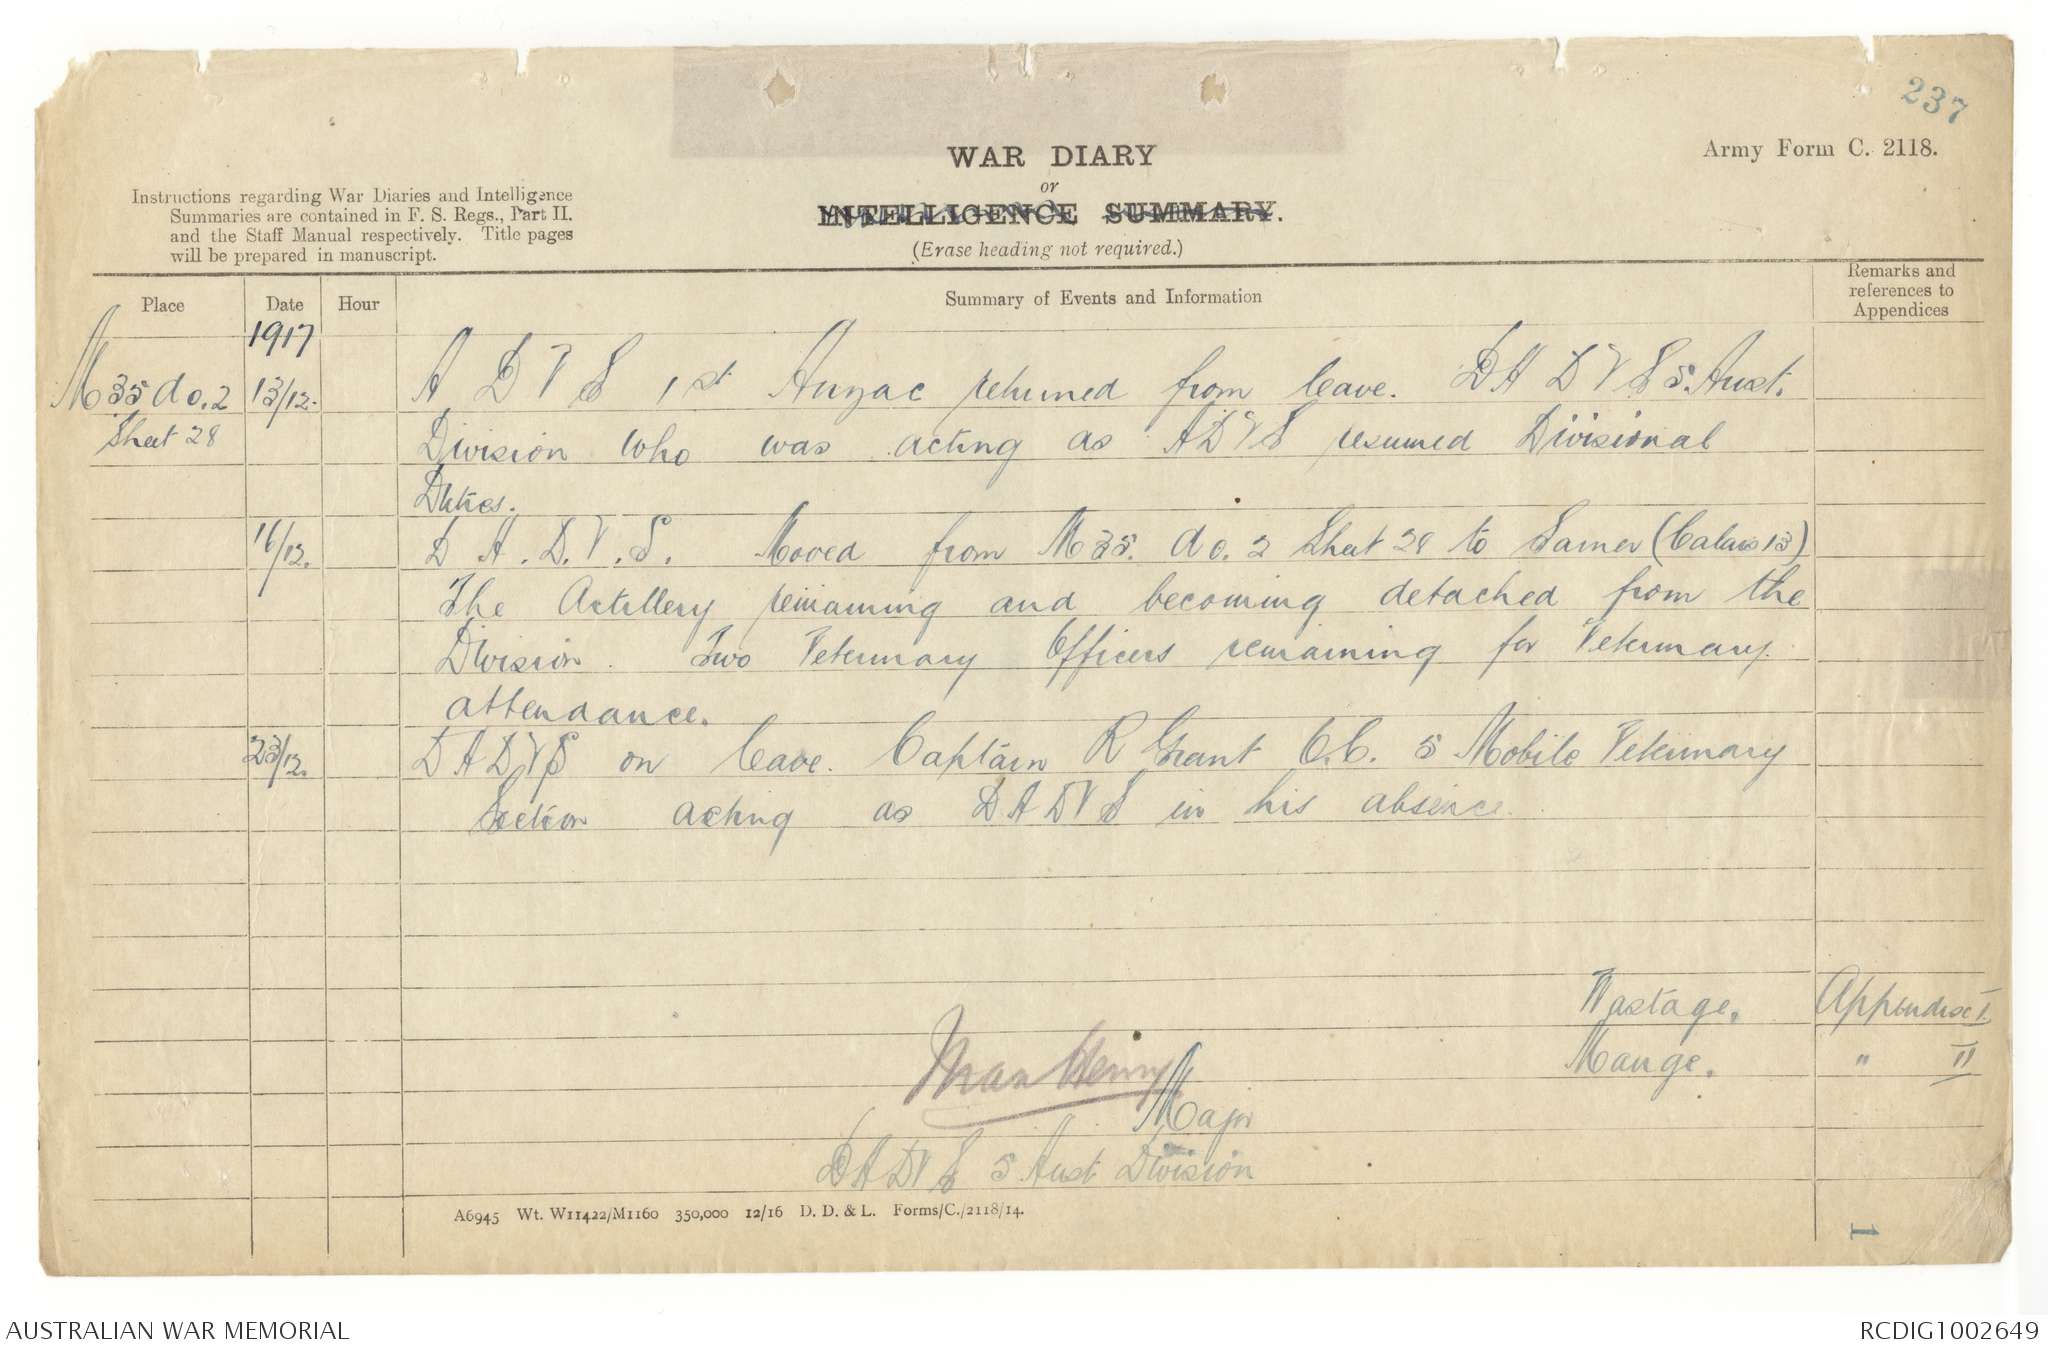 237
Army Form C. 2118.
WAR DIARY
or
INTELLIGENCE SUMMARY.
(Erase heading not required.)
Instructions regarding War Diaries and Intelligence
Summaries are contained in F. S. Regs., Part II.
and the Staff Manual respectively. Title pages
will be prepared in manuscript.
Place Date Hour Summary of Events and Information Remarks and references to Appendices
1917
M 35 d 0.2 13/12. A D V S 1st Anzac returned from leave. DA D V S 5. Aust.
Sheet 28 Division who was acting as ADVS resumed Divisional
Duties.
16/12. D. A. D. V. S. Moved from M35. d 0. 2 Sheet 28 to Samer (Calais 13)
The Artillery remaining and becoming detached from the
Division. Two Veterinary Officers remaining for Veterinary
attendance.
23/12. DADVS on leave. Captain R Grant O.C. 5 Mobile Veterinary
Section acting as DADVS in his absence.
Wastage. Appendix I.
Mange. " II
Max Henry
Major
DADVS 5 Aust Division
A6945 Wt. W11422/M1160 350,000 12/16 D. D. & L. Forms/C./2118/14.
1
AUSTRALIAN WAR MEMORIAL
RCDIG1002649